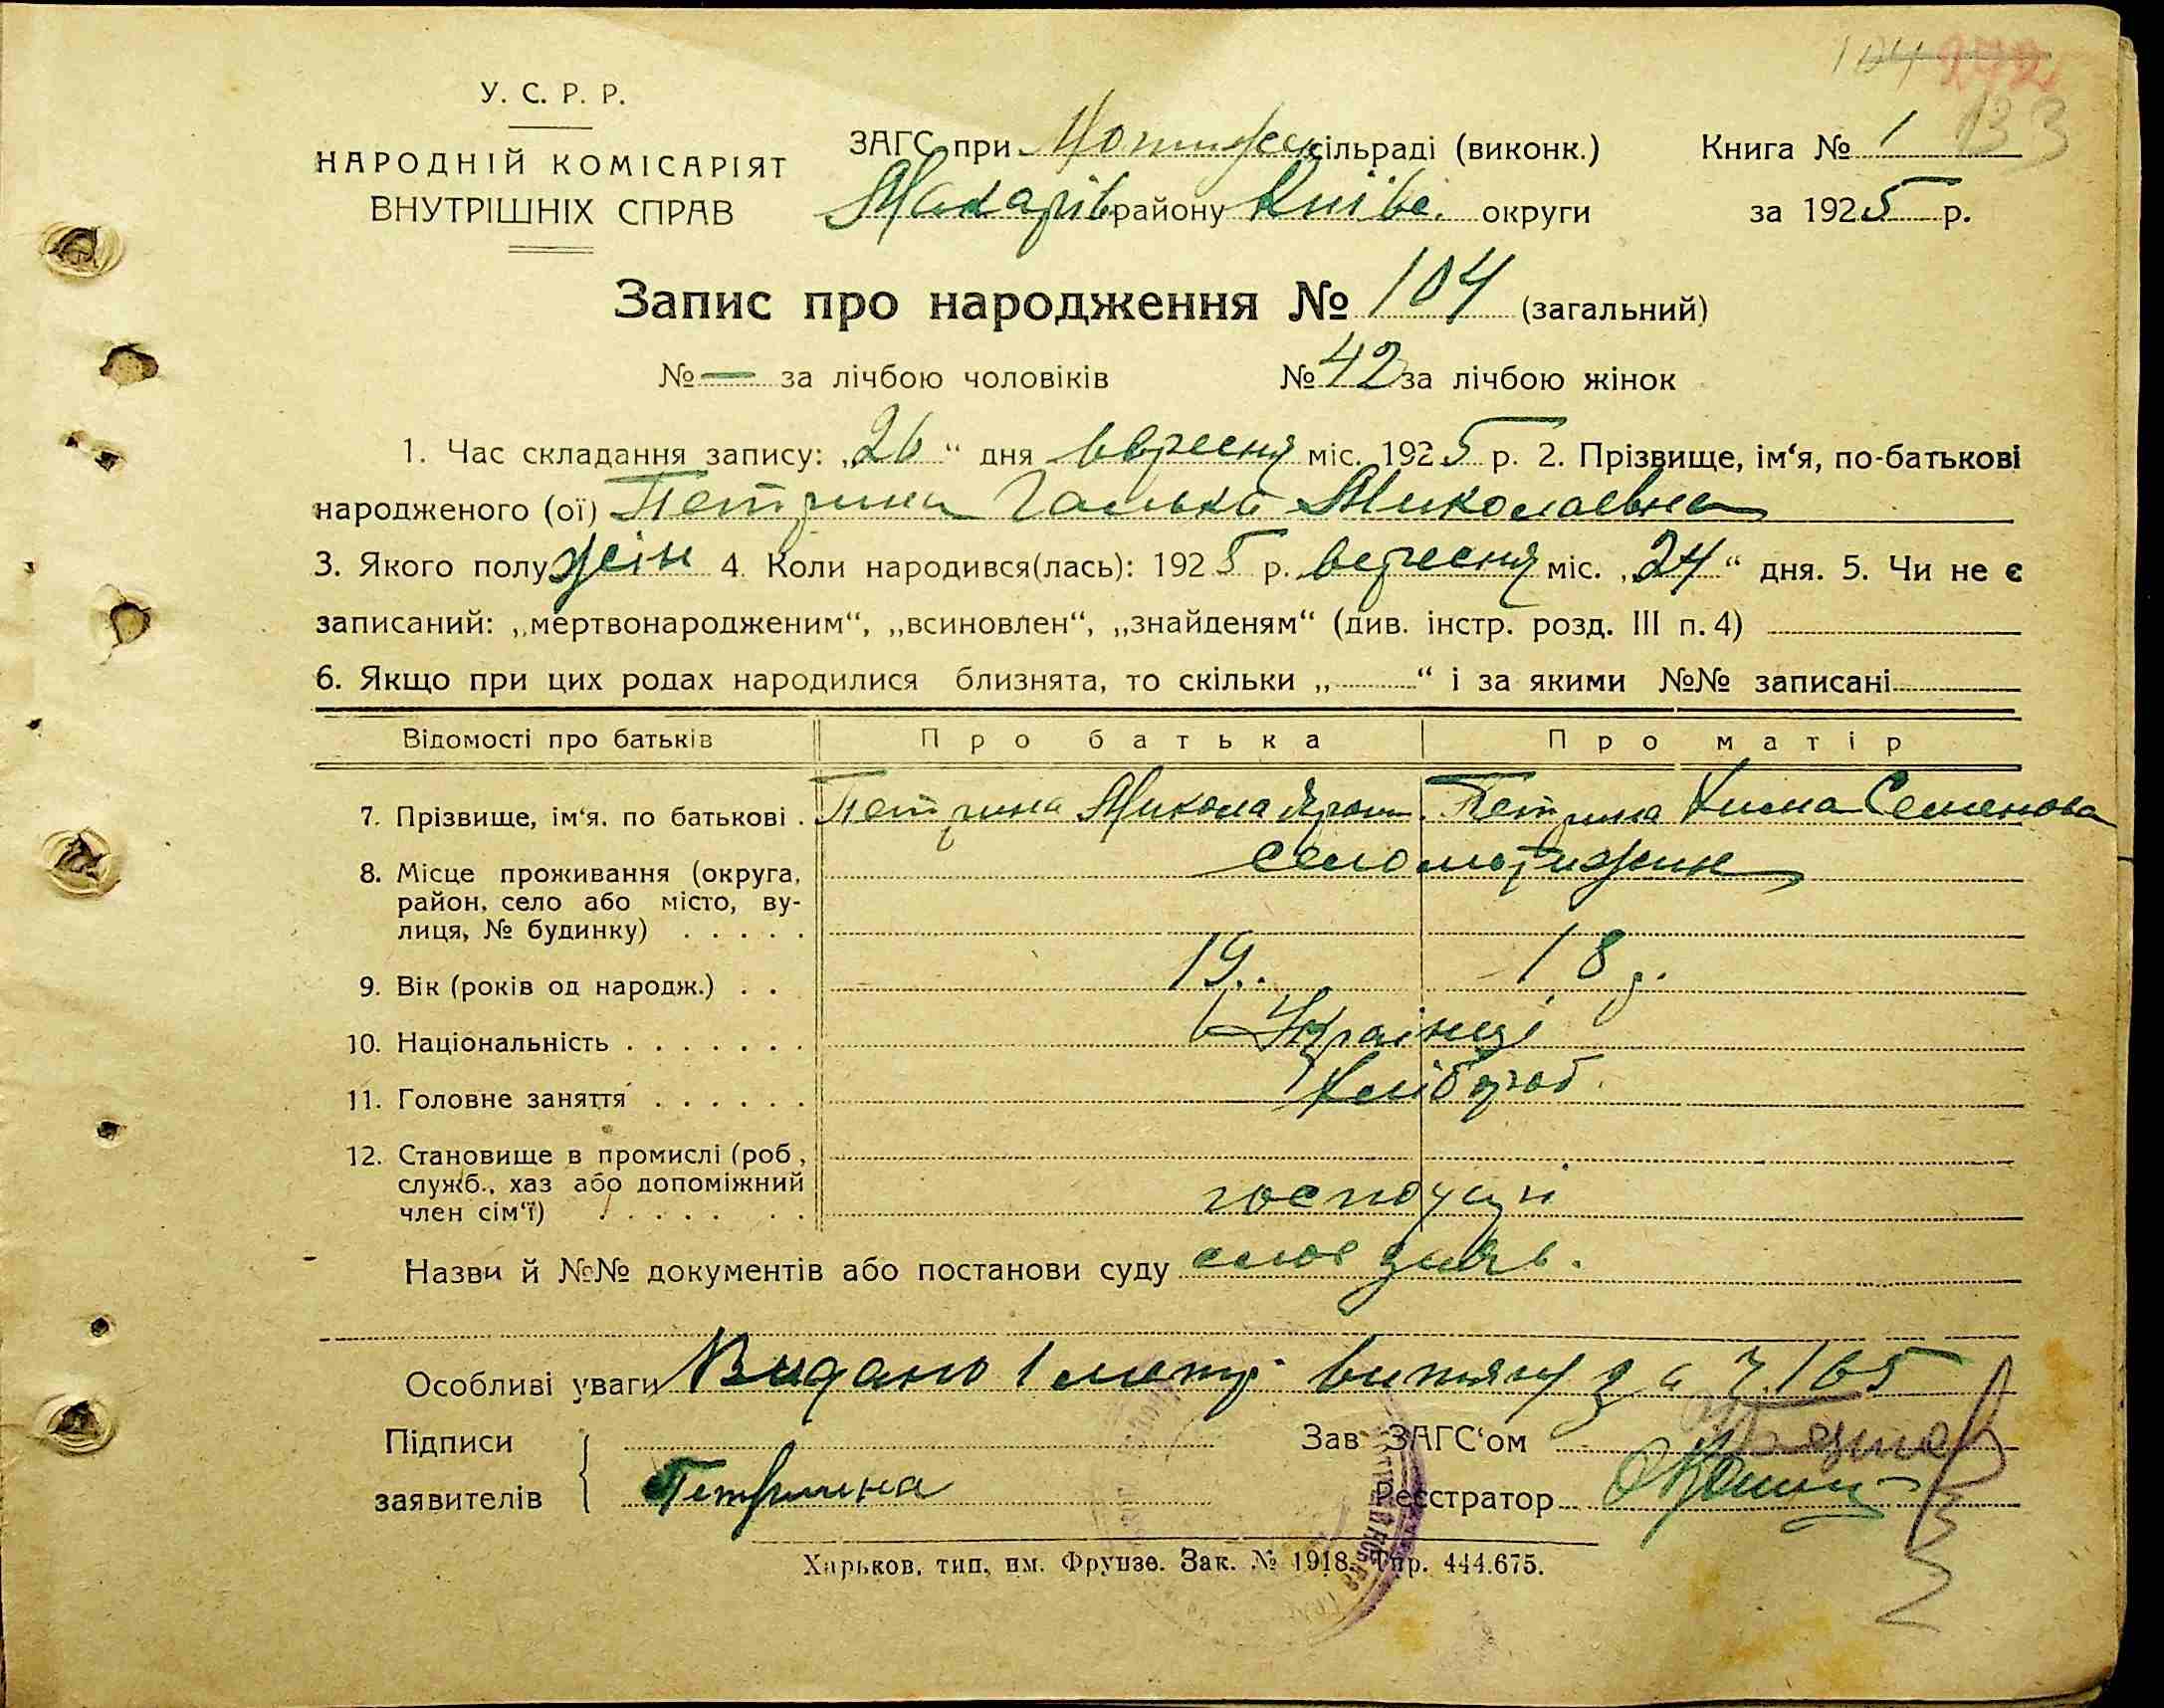 104 272
133
У. С. Р. Р.
НАРОДНІЙ КОМІСАРІЯТ
ВНУТРІШНІХ СПРАВ
ЗАГС при Мотижен сільраді (виконк.) Книга № 1
Макарів району Київс. округи за 1925 р.
Запис про народження № 104 (загальний)
№ — за лічбою чоловіків № 42 за лічбою жінок
1. Час складання запису: „26“ дня вересня міс. 1925 р. 2. Прізвище, ім‘я, по-батькові
народженого (ої) Петрина Галька Миколаевна
3. Якого полу жін 4. Коли народився(лась): 1925 р. вересня міс. „24“ дня. 5. Чи не є
записаний: „мертвонародженим“, „всиновлен“, „знайденям“ (див. інстр. розд. III п. 4)
6. Якщо при цих родах народилися близнята, то скільки „ “ і за якими №№ записані
Відомості про батьків Про батька Про матір
7. Прізвище, ім‘я. по батькові . Петрина Микола Петрина Химa Семенова
8. Місце проживання (округа, село мотижин
район, село або місто, ву-
лиця, № будинку) . . . . .
9. Вік (років од народж.) . . 19. 18 р.
10. Національність . . . . . . . Українці
11. Головне заняття . . . . . . Хлібороб.
12. Становище в промислі (роб,
служб., хаз або допоміжний
член сім‘ї) . . . . . . господарі
Назви й №№ документів або постанови суду
Особливі уваги Видано витяг за
Підписи Зав ЗАГС‘ом
заявителів Петрина Реєстратор
Харьков, тип, им. Фрунзе. Зак. № 1918. Тир. 444.675.